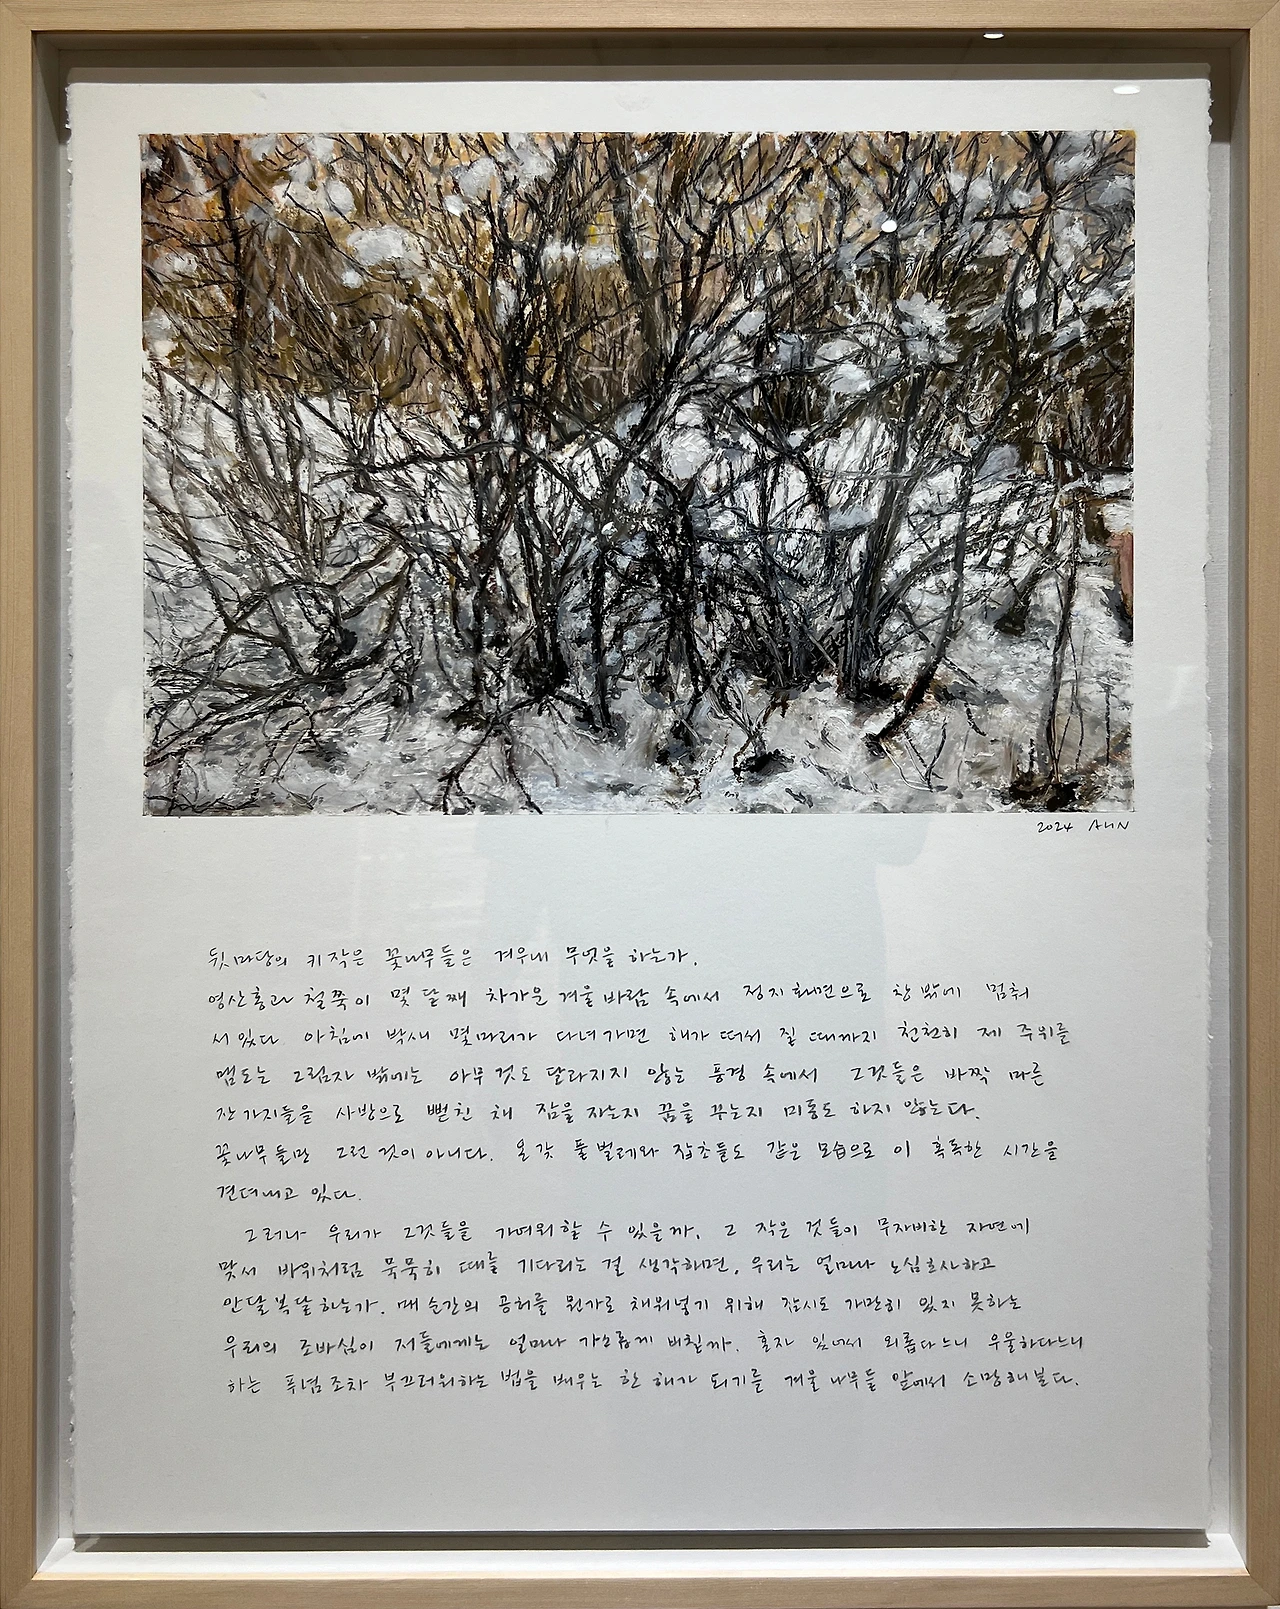 2024 AHN
뒷마당의 키작은 꽃나무들은 겨우내 무엇을 하는가.
영산홍과 철쭉이 몇 달째 차가운 겨울바람 속에서 정지화면으로 창밖에 멈춰
서있다. 아침에 박새 몇마리가 다녀가면 해가 떠서 질 때까지 천천히 제 주위를
맴도는 그림자 밖에는 아무것도 달라지지 않는 풍경 속에서 그것들은 바짝 마른
잔가지들을 사방으로 뻗친 채 잠을 자는지 꿈을 꾸는지 미동도 하지 않는다.
꽃나무들만 그런 것이 아니다. 온갖 풀벌레와 잡초들도 같은 모습으로 이 혹독한 시간을
견뎌내고 있다.
그러나 우리가 그것들을 가여워할 수 있을까. 그 작은 것들이 무자비한 자연에
맞서 바위처럼 묵묵히 때를 기다리는 걸 생각하면, 우리는 얼마나 노심초사하고
안달복달하는가. 매순간의 공허를 뭔가로 채워넣기 위해 잠시도 가만히 있지 못하는
우리의 조바심이 저들에게는 얼마나 가소롭게 비칠까. 혼자 있어서 외롭다느니 우울하다느니
하는 푸념조차 부끄러워하는 법을 배우는 한 해가 되기를 겨울나무들 앞에서 소망해본다.